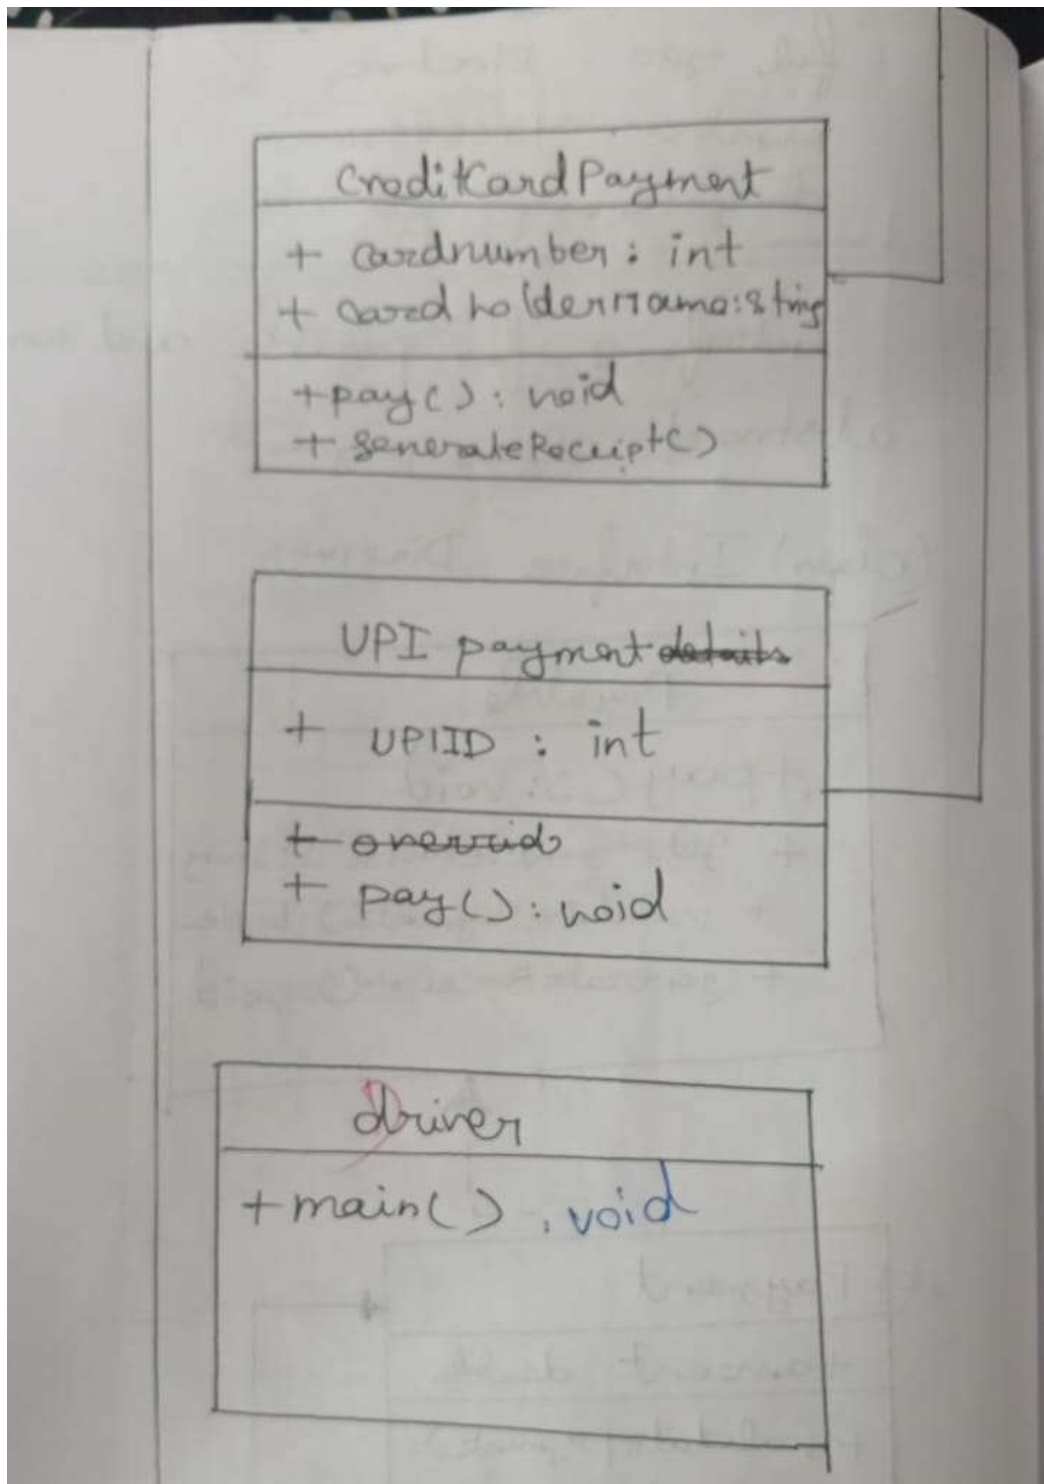 CreditCardPayment
+ cardnumber : int
+ cardholderName:string
+pay() : void
+ generateReceipt()
UPI payment details
+ UPIID : int
+ overrid
+ pay() : void
driver
+main() : void